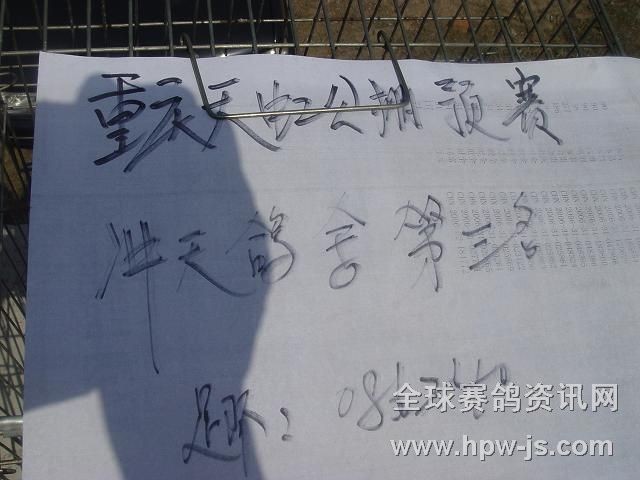 重庆天虹公棚预赛
冲天鸽舍第三名
足环：
全球赛鸽资讯网
www.hpw-js.com